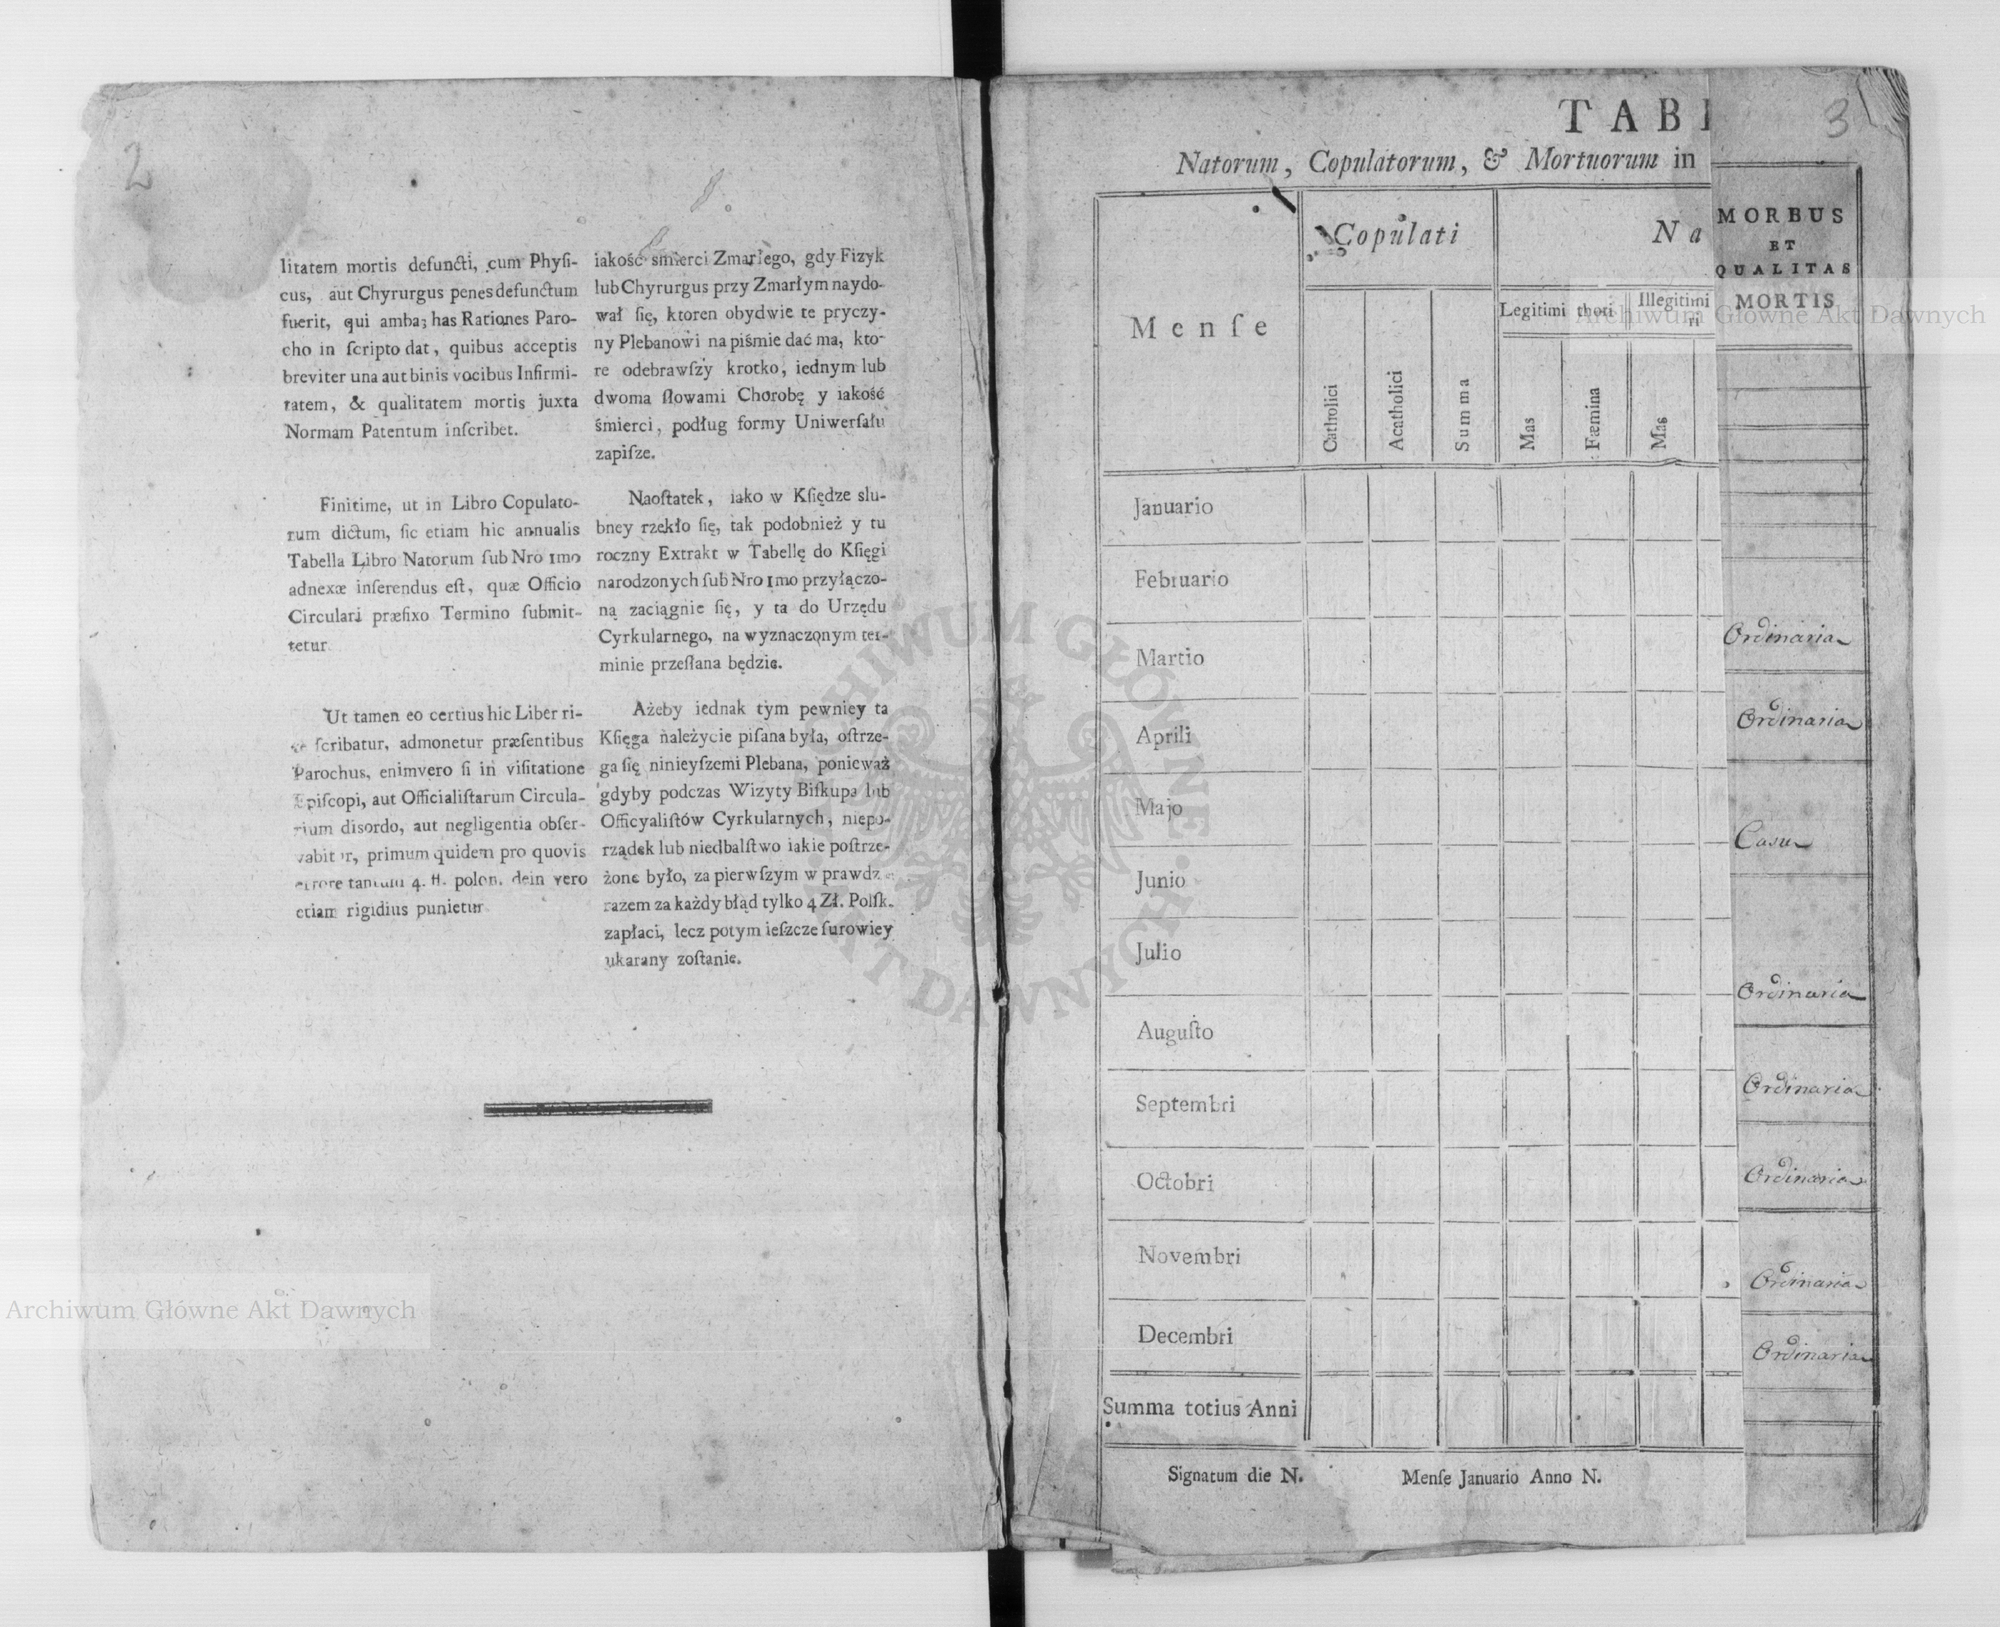 2
litatem mortis defuncti, cum Phyſi-
cus, aut Chyrurgus penes defunctum
fuerit, qui ambas has Rationes Paro-
cho in ſcripto dat, quibus acceptis
breviter una aut binis vocibus Infirmi-
tatem, & qualitatem mortis juxta
Normam Patentum inſcribet.
Finitime, ut in Libro Copulato-
rum dictum, ſic etiam hic annualis
Tabella Libro Natorum ſub Nro 1mo
adnexæ inſerendus eſt, quæ Officio
Circulari præfixo Termino ſubmit-
tetur
Ut tamen eo certius hic Liber ri-
te ſcribatur, admonetur præſentibus
Parochus, enimvero ſi in viſitatione
Epiſcopi, aut Officialiſtarum Circula-
rium disordo, aut negligentia obſer-
vabitur, primum quidem pro quovis
errore tantum 4. fl. polon. dein vero
etiam rigidius punietur
iakość śmierci Zmarłego, gdy Fizyk
lub Chyrurgus przy Zmarłym naydo-
wał ſię, ktoren obydwie te pryczy-
ny Plebanowi na piśmie dać ma, kto-
re odebrawſzy krotko, iednym lub
dwoma ſlowami Chorobę y iakość
śmierci, podług formy Uniwerſału
zapiſze.
Naoſtatek, iako w Kſiędze slu-
bney rzekło ſię, tak podobnież y tu
roczny Extrakt w Tabellę do Kſięgi
narodzonych ſub Nro 1mo przyłączo-
ną zaciągnie ſię, y ta do Urzędu
Cyrkularnego, na wyznaczonym ter-
minie przeſłana będzie.
Ażeby iednak tym pewniey ta
Kſięga należycie piſana była, oſtrze-
ga ſię ninieyſzemi Plebana, ponieważ
gdyby podczas Wizyty Biſkupa lub
Officyaliſtów Cyrkularnych, niepo-
rządek lub niedbalſtwo iakie poſtrze-
żone było, za pierwſzym w prawdz
razem za każdy błąd tylko 4 Zł. Polſk.
zapłaci, lecz potym ieſzcze ſurowiey
ukarany zoſtanie.
3
TABE
Natorum, Copulatorum, & Mortuorum in
Menſe
Copulati
Na
Legitimi thori
Illegitimi
ri
Catholici
Acatholici
Summa
Mas
Fæmina
Mas
Januario
Februario
Martio
Aprili
Majo
Junio
Julio
Auguſto
Septembri
Octobri
Novembri
Decembri
Summa totius Anni
Signatum die N. Menſe Januario Anno N.
MORBUS
ET
QUALITAS
MORTIS
Ordinaria
Ordinaria
Casu
Ordinaria
Ordinaria
Ordinaria
Ordinaria
Ordinaria
Archiwum Główne Akt Dawnych
Archiwum Główne Akt Dawnych
ARCHIWUM GŁÓWNE
AKT DAWNYCH